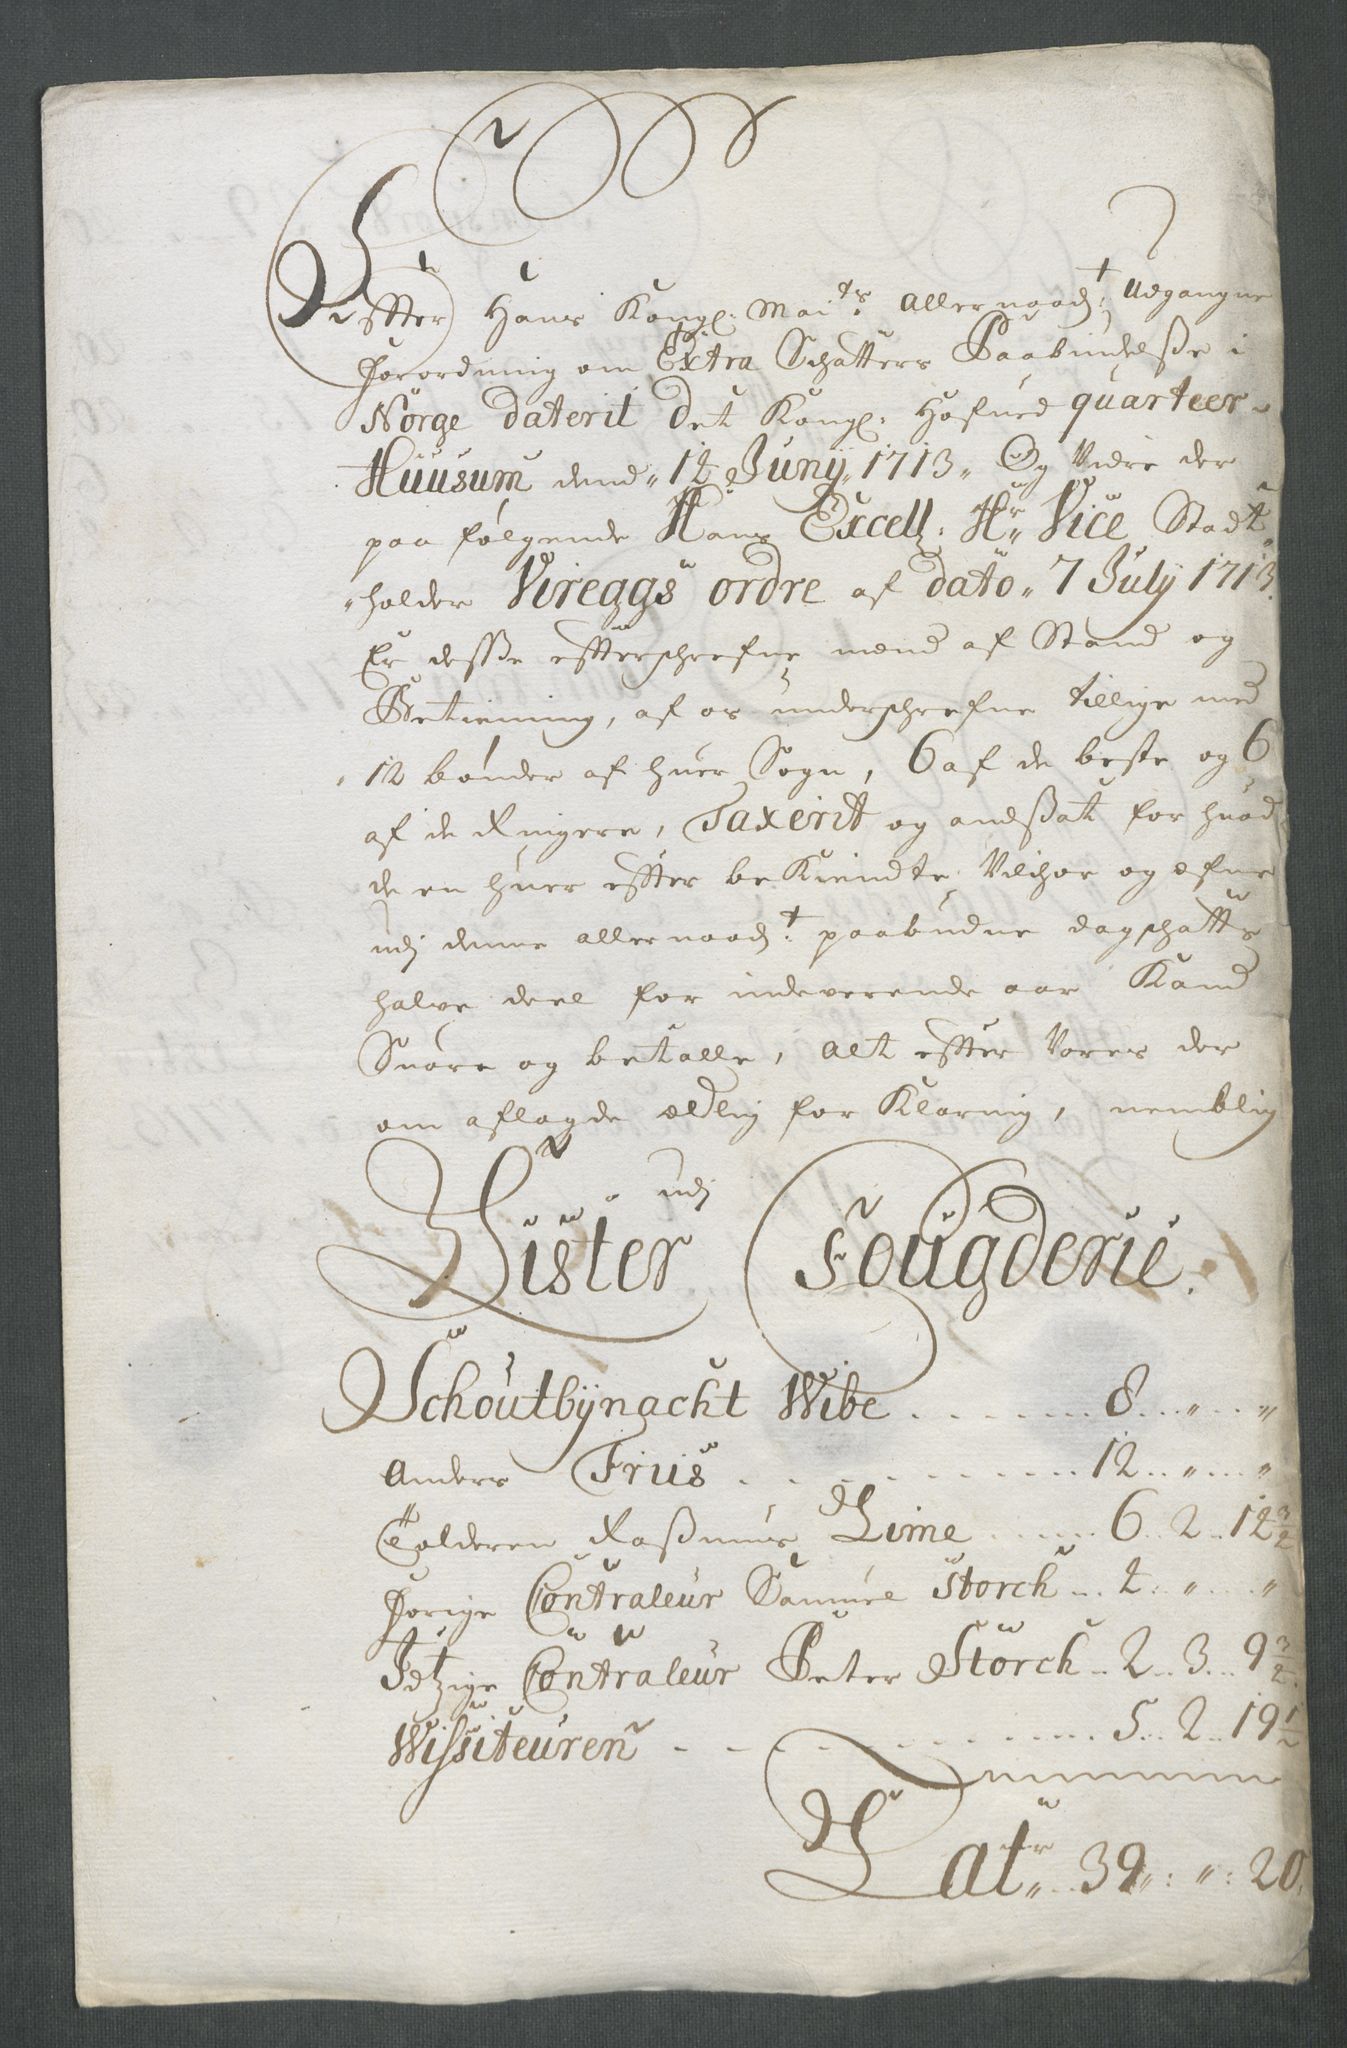 Effter Hans Kongl: Mai:ts Allernaad:t Udgangne
Forordning om Extra Schatters Paabudelsße i
Norge daterit det Kongl: Hofued quarteer
Huusum dend 12 Junij 1713 Og Vidre der
paa følgende Hans Excell: Hr Vice Stadt
holder Vireggs ordre af dato 7 July 1713.
Er desße effterschrefne mend af Stand og
Betiening, af os underschrefne tillige med
12 bønder af huer Sogn, 6 af de beste og 6
af de Ringere, Taxerit og andsßat for huad
de en huer effter bekiendte Vilchor og æfne
udj denne allernaad:t paabudne dagschatts
halve deel for indeverende aar Kand
Suare og betalle, Alt effter Vores der
om aflagde ædlig forklaring, nemblig
udj
Lister Fougderie.
Schoutbynacht Wibe 8 " "
Anders Friis 12 " "
Tolderen Raßmus Lime 6 2 12 3/2
Forige Contraleur Samuel Storch 2 " "
Jtzige Contraleur Peter Storch 2 3 9 3/2
Wissiteuren 5 2 19 1/2
Latr 39 : " : 20.